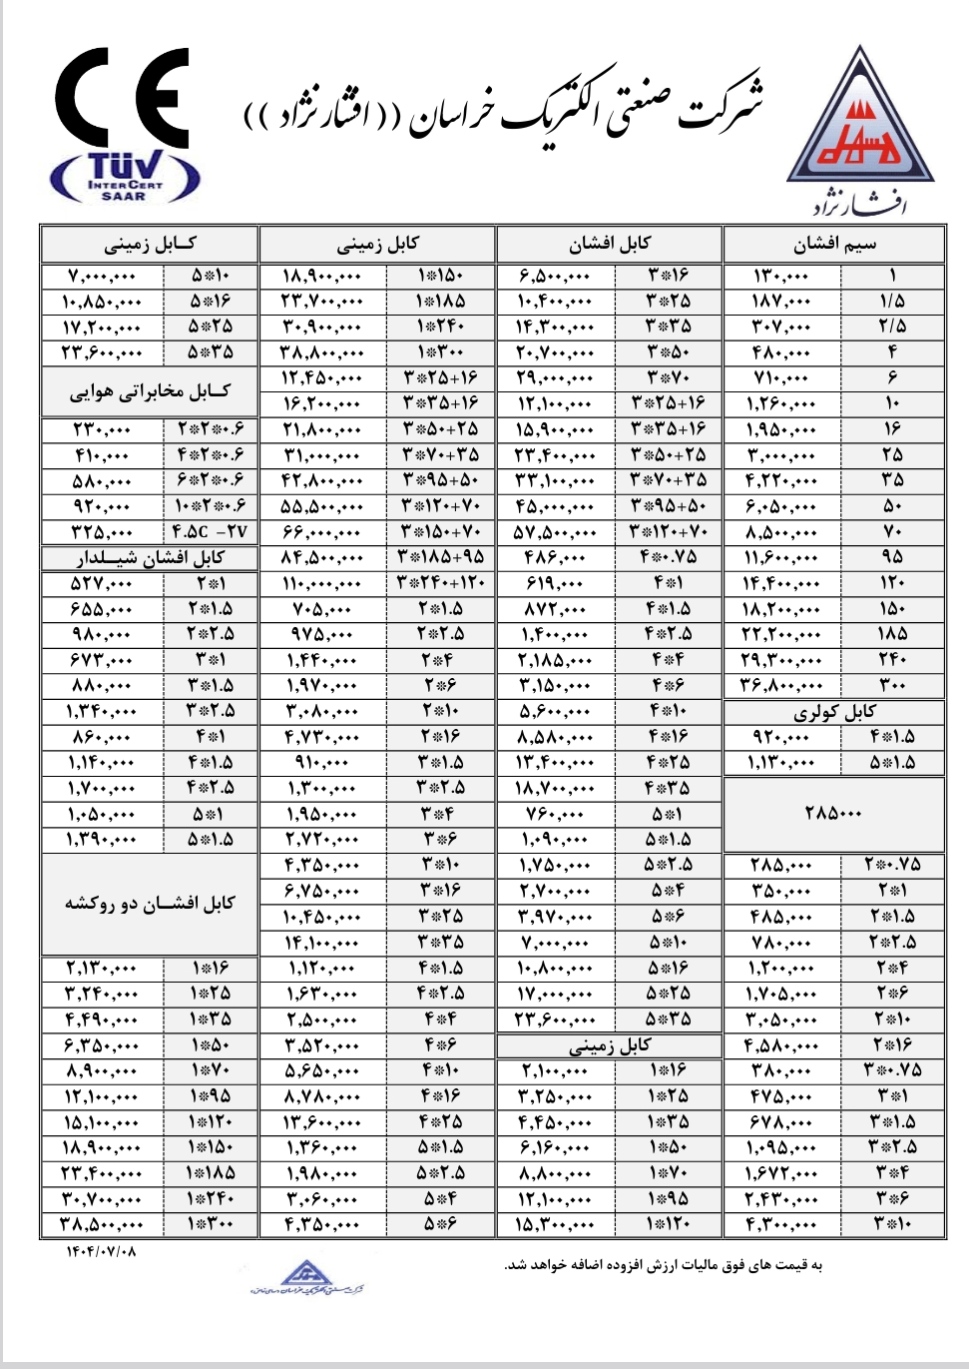 CE
TÜV
INTERCERT
SAAR
شرکت صنعتی الکتریک خراسان (( افشارنژاد ))
افشارنژاد
سیم افشان
۱ ۱۳۰,۰۰۰
۱/۵ ۱۸۷,۰۰۰
۲/۵ ۳۰۷,۰۰۰
۴ ۴۸۰,۰۰۰
۶ ۷۱۰,۰۰۰
۱۰ ۱,۲۶۰,۰۰۰
۱۶ ۱,۹۵۰,۰۰۰
۲۵ ۳,۰۰۰,۰۰۰
۳۵ ۴,۲۲۰,۰۰۰
۵۰ ۶,۰۵۰,۰۰۰
۷۰ ۸,۵۰۰,۰۰۰
۹۵ ۱۱,۶۰۰,۰۰۰
۱۲۰ ۱۴,۴۰۰,۰۰۰
۱۵۰ ۱۸,۲۰۰,۰۰۰
۱۸۵ ۲۲,۲۰۰,۰۰۰
۲۴۰ ۲۹,۳۰۰,۰۰۰
۳۰۰ ۳۶,۸۰۰,۰۰۰
کابل کولری
۴*۱.۵ ۹۲۰,۰۰۰
۵*۱.۵ ۱,۱۳۰,۰۰۰
۲۸۵۰۰۰
۲*۰.۷۵ ۲۸۵,۰۰۰
۲*۱ ۳۵۰,۰۰۰
۲*۱.۵ ۴۸۵,۰۰۰
۲*۲.۵ ۷۸۰,۰۰۰
۲*۴ ۱,۲۰۰,۰۰۰
۲*۶ ۱,۷۰۵,۰۰۰
۲*۱۰ ۳,۰۵۰,۰۰۰
۲*۱۶ ۴,۵۸۰,۰۰۰
۳*۰.۷۵ ۳۸۰,۰۰۰
۳*۱ ۴۷۵,۰۰۰
۳*۱.۵ ۶۷۸,۰۰۰
۳*۲.۵ ۱,۰۹۵,۰۰۰
۳*۴ ۱,۶۷۲,۰۰۰
۳*۶ ۲,۴۳۰,۰۰۰
۳*۱۰ ۴,۳۰۰,۰۰۰
کابل افشان
۳*۱۶ ۶,۵۰۰,۰۰۰
۳*۲۵ ۱۰,۴۰۰,۰۰۰
۳*۳۵ ۱۴,۳۰۰,۰۰۰
۳*۵۰ ۲۰,۷۰۰,۰۰۰
۳*۷۰ ۲۹,۰۰۰,۰۰۰
۳*۲۵+۱۶ ۱۲,۱۰۰,۰۰۰
۳*۳۵+۱۶ ۱۵,۹۰۰,۰۰۰
۳*۵۰+۲۵ ۲۳,۴۰۰,۰۰۰
۳*۷۰+۳۵ ۳۳,۱۰۰,۰۰۰
۳*۹۵+۵۰ ۴۵,۰۰۰,۰۰۰
۳*۱۲۰+۷۰ ۵۷,۵۰۰,۰۰۰
۴*۰.۷۵ ۴۸۶,۰۰۰
۴*۱ ۶۱۹,۰۰۰
۴*۱.۵ ۸۷۲,۰۰۰
۴*۲.۵ ۱,۴۰۰,۰۰۰
۴*۴ ۲,۱۸۵,۰۰۰
۴*۶ ۳,۱۵۰,۰۰۰
۴*۱۰ ۵,۶۰۰,۰۰۰
۴*۱۶ ۸,۵۸۰,۰۰۰
۴*۲۵ ۱۳,۴۰۰,۰۰۰
۴*۳۵ ۱۸,۷۰۰,۰۰۰
۵*۱ ۷۶۰,۰۰۰
۵*۱.۵ ۱,۰۹۰,۰۰۰
۵*۲.۵ ۱,۷۵۰,۰۰۰
۵*۴ ۲,۷۰۰,۰۰۰
۵*۶ ۳,۹۷۰,۰۰۰
۵*۱۰ ۷,۰۰۰,۰۰۰
۵*۱۶ ۱۰,۸۰۰,۰۰۰
۵*۲۵ ۱۷,۰۰۰,۰۰۰
۵*۳۵ ۲۳,۶۰۰,۰۰۰
کابل زمینی
۱*۱۶ ۲,۱۰۰,۰۰۰
۱*۲۵ ۳,۲۵۰,۰۰۰
۱*۳۵ ۴,۴۵۰,۰۰۰
۱*۵۰ ۶,۱۶۰,۰۰۰
۱*۷۰ ۸,۸۰۰,۰۰۰
۱*۹۵ ۱۲,۱۰۰,۰۰۰
۱*۱۲۰ ۱۵,۳۰۰,۰۰۰
کابل زمینی
۱*۱۵۰ ۱۸,۹۰۰,۰۰۰
۱*۱۸۵ ۲۳,۷۰۰,۰۰۰
۱*۲۴۰ ۳۰,۹۰۰,۰۰۰
۱*۳۰۰ ۳۸,۸۰۰,۰۰۰
۳*۲۵+۱۶ ۱۲,۴۵۰,۰۰۰
۳*۳۵+۱۶ ۱۶,۲۰۰,۰۰۰
۳*۵۰+۲۵ ۲۱,۸۰۰,۰۰۰
۳*۷۰+۳۵ ۳۱,۰۰۰,۰۰۰
۳*۹۵+۵۰ ۴۲,۸۰۰,۰۰۰
۳*۱۲۰+۷۰ ۵۵,۵۰۰,۰۰۰
۳*۱۵۰+۷۰ ۶۶,۰۰۰,۰۰۰
۳*۱۸۵+۹۵ ۸۴,۵۰۰,۰۰۰
۳*۲۴۰+۱۲۰ ۱۱۰,۰۰۰,۰۰۰
۲*۱.۵ ۷۰۵,۰۰۰
۲*۲.۵ ۹۷۵,۰۰۰
۲*۴ ۱,۴۴۰,۰۰۰
۲*۶ ۱,۹۷۰,۰۰۰
۲*۱۰ ۳,۰۸۰,۰۰۰
۲*۱۶ ۴,۷۳۰,۰۰۰
۳*۱.۵ ۹۱۰,۰۰۰
۳*۲.۵ ۱,۳۰۰,۰۰۰
۳*۴ ۱,۹۵۰,۰۰۰
۳*۶ ۲,۷۲۰,۰۰۰
۳*۱۰ ۴,۳۵۰,۰۰۰
۳*۱۶ ۶,۷۵۰,۰۰۰
۳*۲۵ ۱۰,۴۵۰,۰۰۰
۳*۳۵ ۱۴,۱۰۰,۰۰۰
۴*۱.۵ ۱,۱۲۰,۰۰۰
۴*۲.۵ ۱,۶۳۰,۰۰۰
۴*۴ ۲,۵۰۰,۰۰۰
۴*۶ ۳,۵۲۰,۰۰۰
۴*۱۰ ۵,۶۵۰,۰۰۰
۴*۱۶ ۸,۷۸۰,۰۰۰
۴*۲۵ ۱۳,۶۰۰,۰۰۰
۵*۱.۵ ۱,۳۶۰,۰۰۰
۵*۲.۵ ۱,۹۸۰,۰۰۰
۵*۴ ۳,۰۶۰,۰۰۰
۵*۶ ۴,۳۵۰,۰۰۰
کــابل زمینی
۵*۱۰ ۷,۰۰۰,۰۰۰
۵*۱۶ ۱۰,۸۵۰,۰۰۰
۵*۲۵ ۱۷,۲۰۰,۰۰۰
۵*۳۵ ۲۳,۶۰۰,۰۰۰
کــابل مخابراتی هوایی
۲*۲*۰.۶ ۲۳۰,۰۰۰
۴*۲*۰.۶ ۴۱۰,۰۰۰
۶*۲*۰.۶ ۵۸۰,۰۰۰
۱۰*۲*۰.۶ ۹۲۰,۰۰۰
۴.۵C –۲V ۳۲۵,۰۰۰
کابل افشان شیــلدار
۲*۱ ۵۲۷,۰۰۰
۲*۱.۵ ۶۵۵,۰۰۰
۲*۲.۵ ۹۸۰,۰۰۰
۳*۱ ۶۷۳,۰۰۰
۳*۱.۵ ۸۸۰,۰۰۰
۳*۲.۵ ۱,۳۴۰,۰۰۰
۴*۱ ۸۶۰,۰۰۰
۴*۱.۵ ۱,۱۴۰,۰۰۰
۴*۲.۵ ۱,۷۰۰,۰۰۰
۵*۱ ۱,۰۵۰,۰۰۰
۵*۱.۵ ۱,۳۹۰,۰۰۰
کابل افشــان دو روکشه
۱*۱۶ ۲,۱۳۰,۰۰۰
۱*۲۵ ۳,۲۴۰,۰۰۰
۱*۳۵ ۴,۴۹۰,۰۰۰
۱*۵۰ ۶,۳۵۰,۰۰۰
۱*۷۰ ۸,۹۰۰,۰۰۰
۱*۹۵ ۱۲,۱۰۰,۰۰۰
۱*۱۲۰ ۱۵,۱۰۰,۰۰۰
۱*۱۵۰ ۱۸,۹۰۰,۰۰۰
۱*۱۸۵ ۲۳,۴۰۰,۰۰۰
۱*۲۴۰ ۳۰,۷۰۰,۰۰۰
۱*۳۰۰ ۳۸,۵۰۰,۰۰۰
۱۴۰۴/۰۷/۰۸
به قیمت های فوق مالیات ارزش افزوده اضافه خواهد شد.